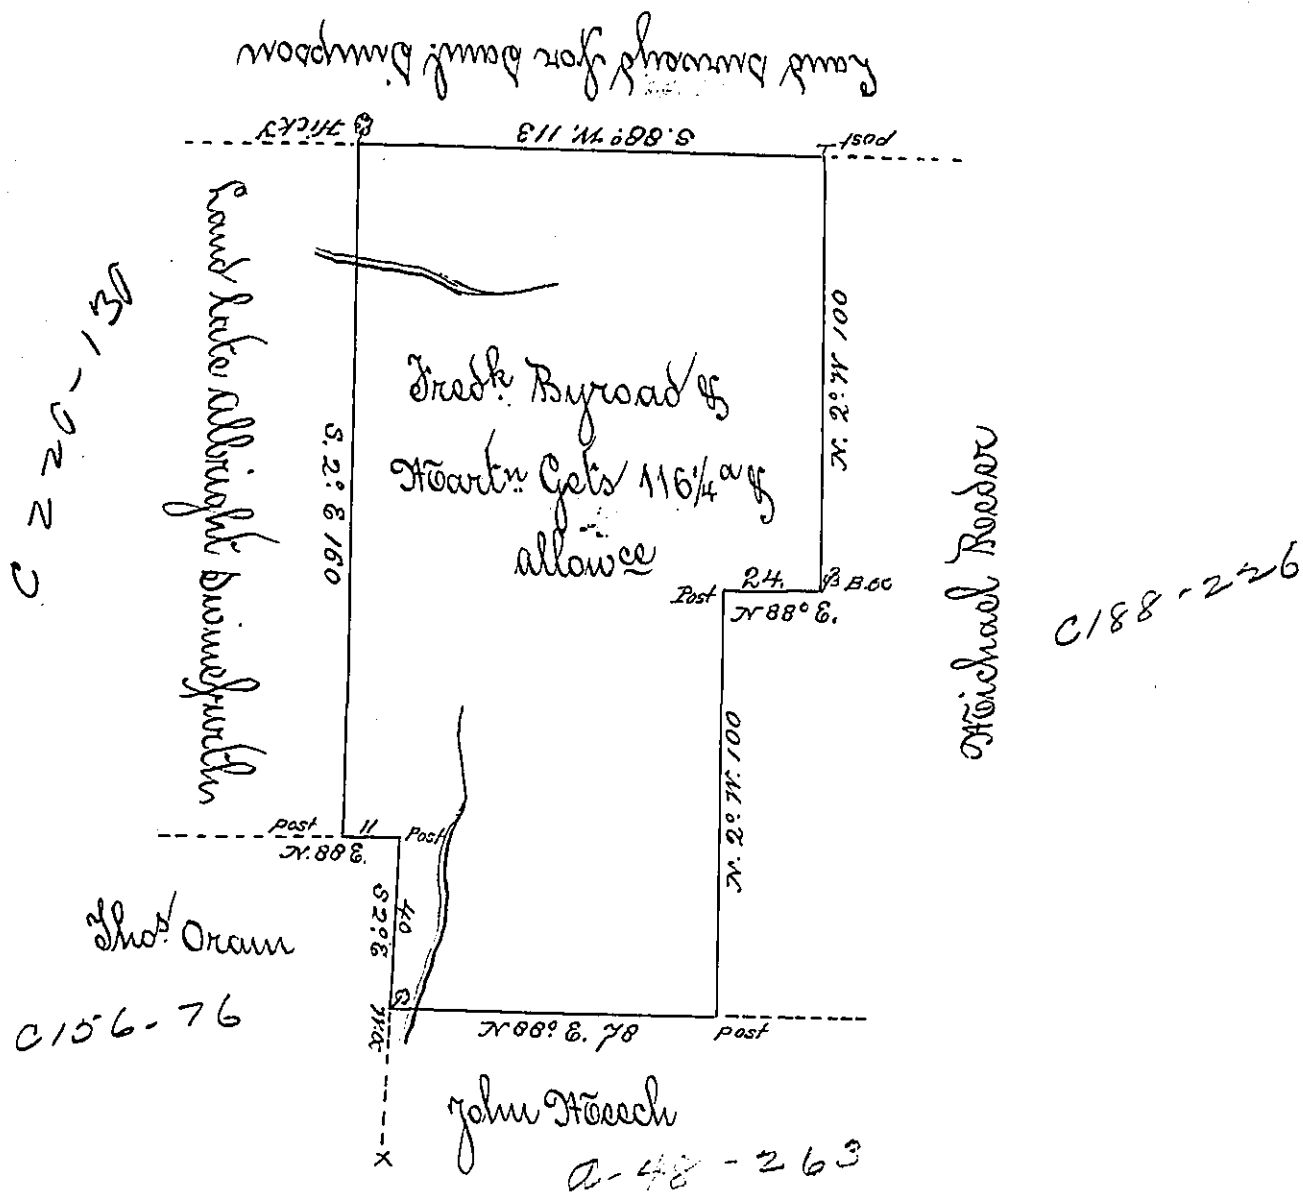 Land Survey'd for Sam'l Simpson
Hicky
S. 88° W. 113
post
Land late Albright Swinefurth
C 220-130
S. 2° E 160
N. 2° W 100
Fredk. Byroad &
Martn Gets 116¼ a &
allowce
Post
24.
N 88° E.
B.O
Michael Reeder
C188-226
N. 2° W. 100
post
11
Post
N. 88 E.
40
S 2° E
Thos. Oram
C156-76
W.O
N 88° E. 78
post
John Meech
X
A-48-263